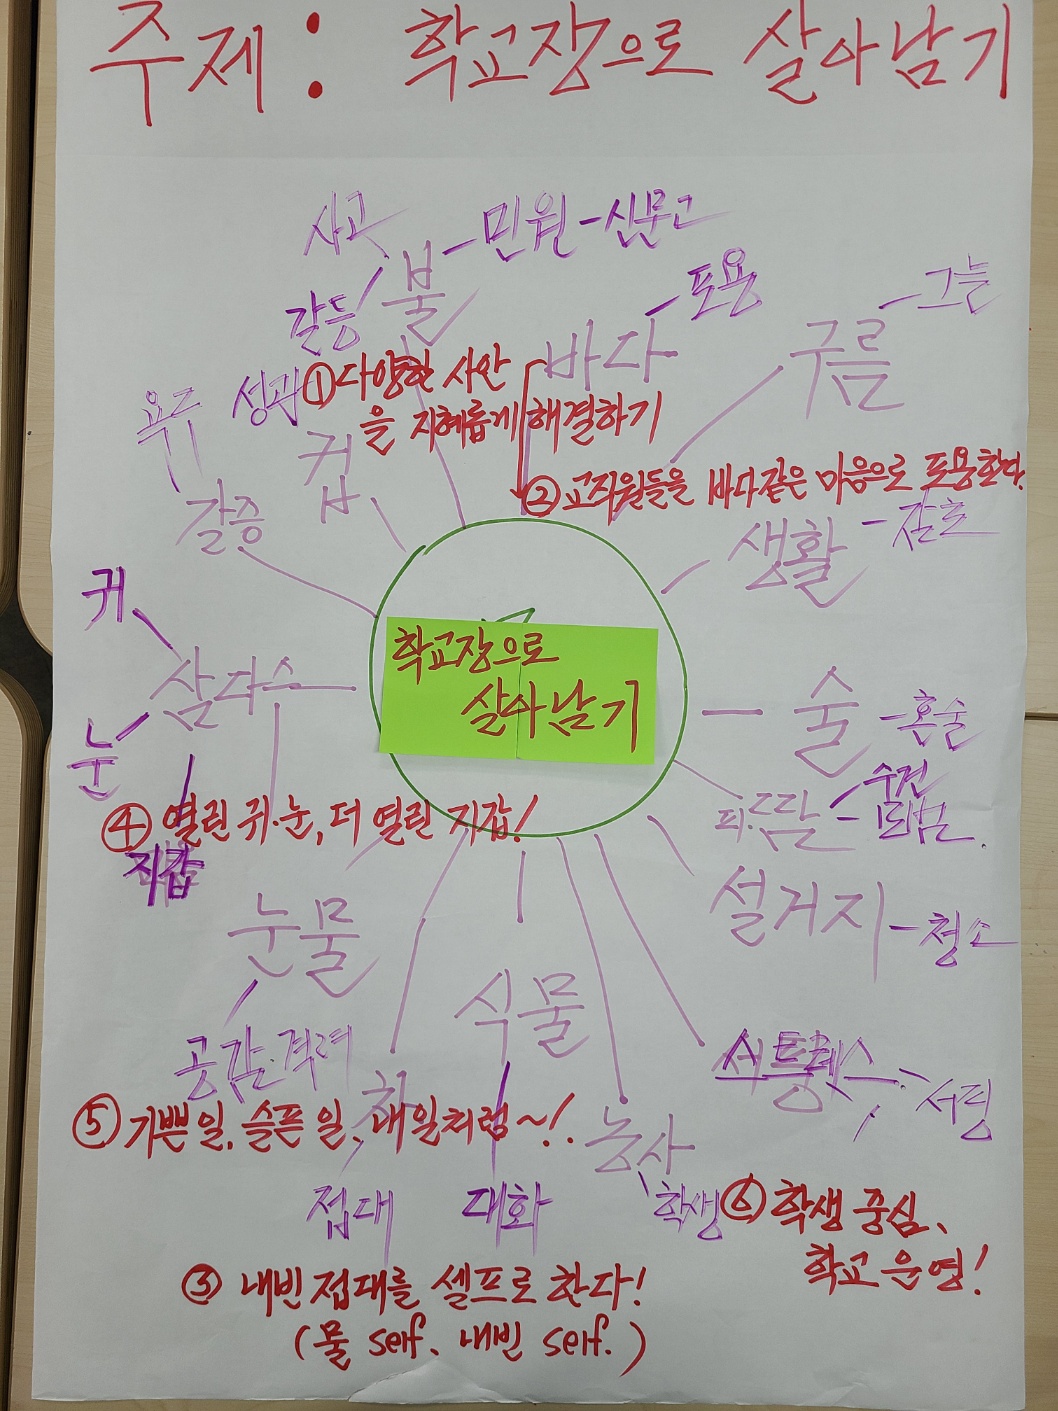 주제 : 학교장으로 살아남기
사고
불 - 민원 - 신문고
갈등
바다 - 포용
구름 - 그늘
욕구
성과
컵
갈증
① 다양한 사안
을 지혜롭게 해결하기
② 교직원들을 바다같은 마음으로 포용한다.
생활
귀
삼다수
눈
학교장으로
살아남기
술 - 혼술
수건
청소
설거지
④ 열린 귀·눈, 더 열린 지갑!
지갑
눈물
공감·격려
식물
차
서평
⑤ 기쁜 일, 슬픈 일, 내일처럼~!.
농사
접대
대화
학생
⑥ 학생 중심、
학교 운영!
③ 내빈 접대를 셀프로 한다!
(물 self、내빈 self.)